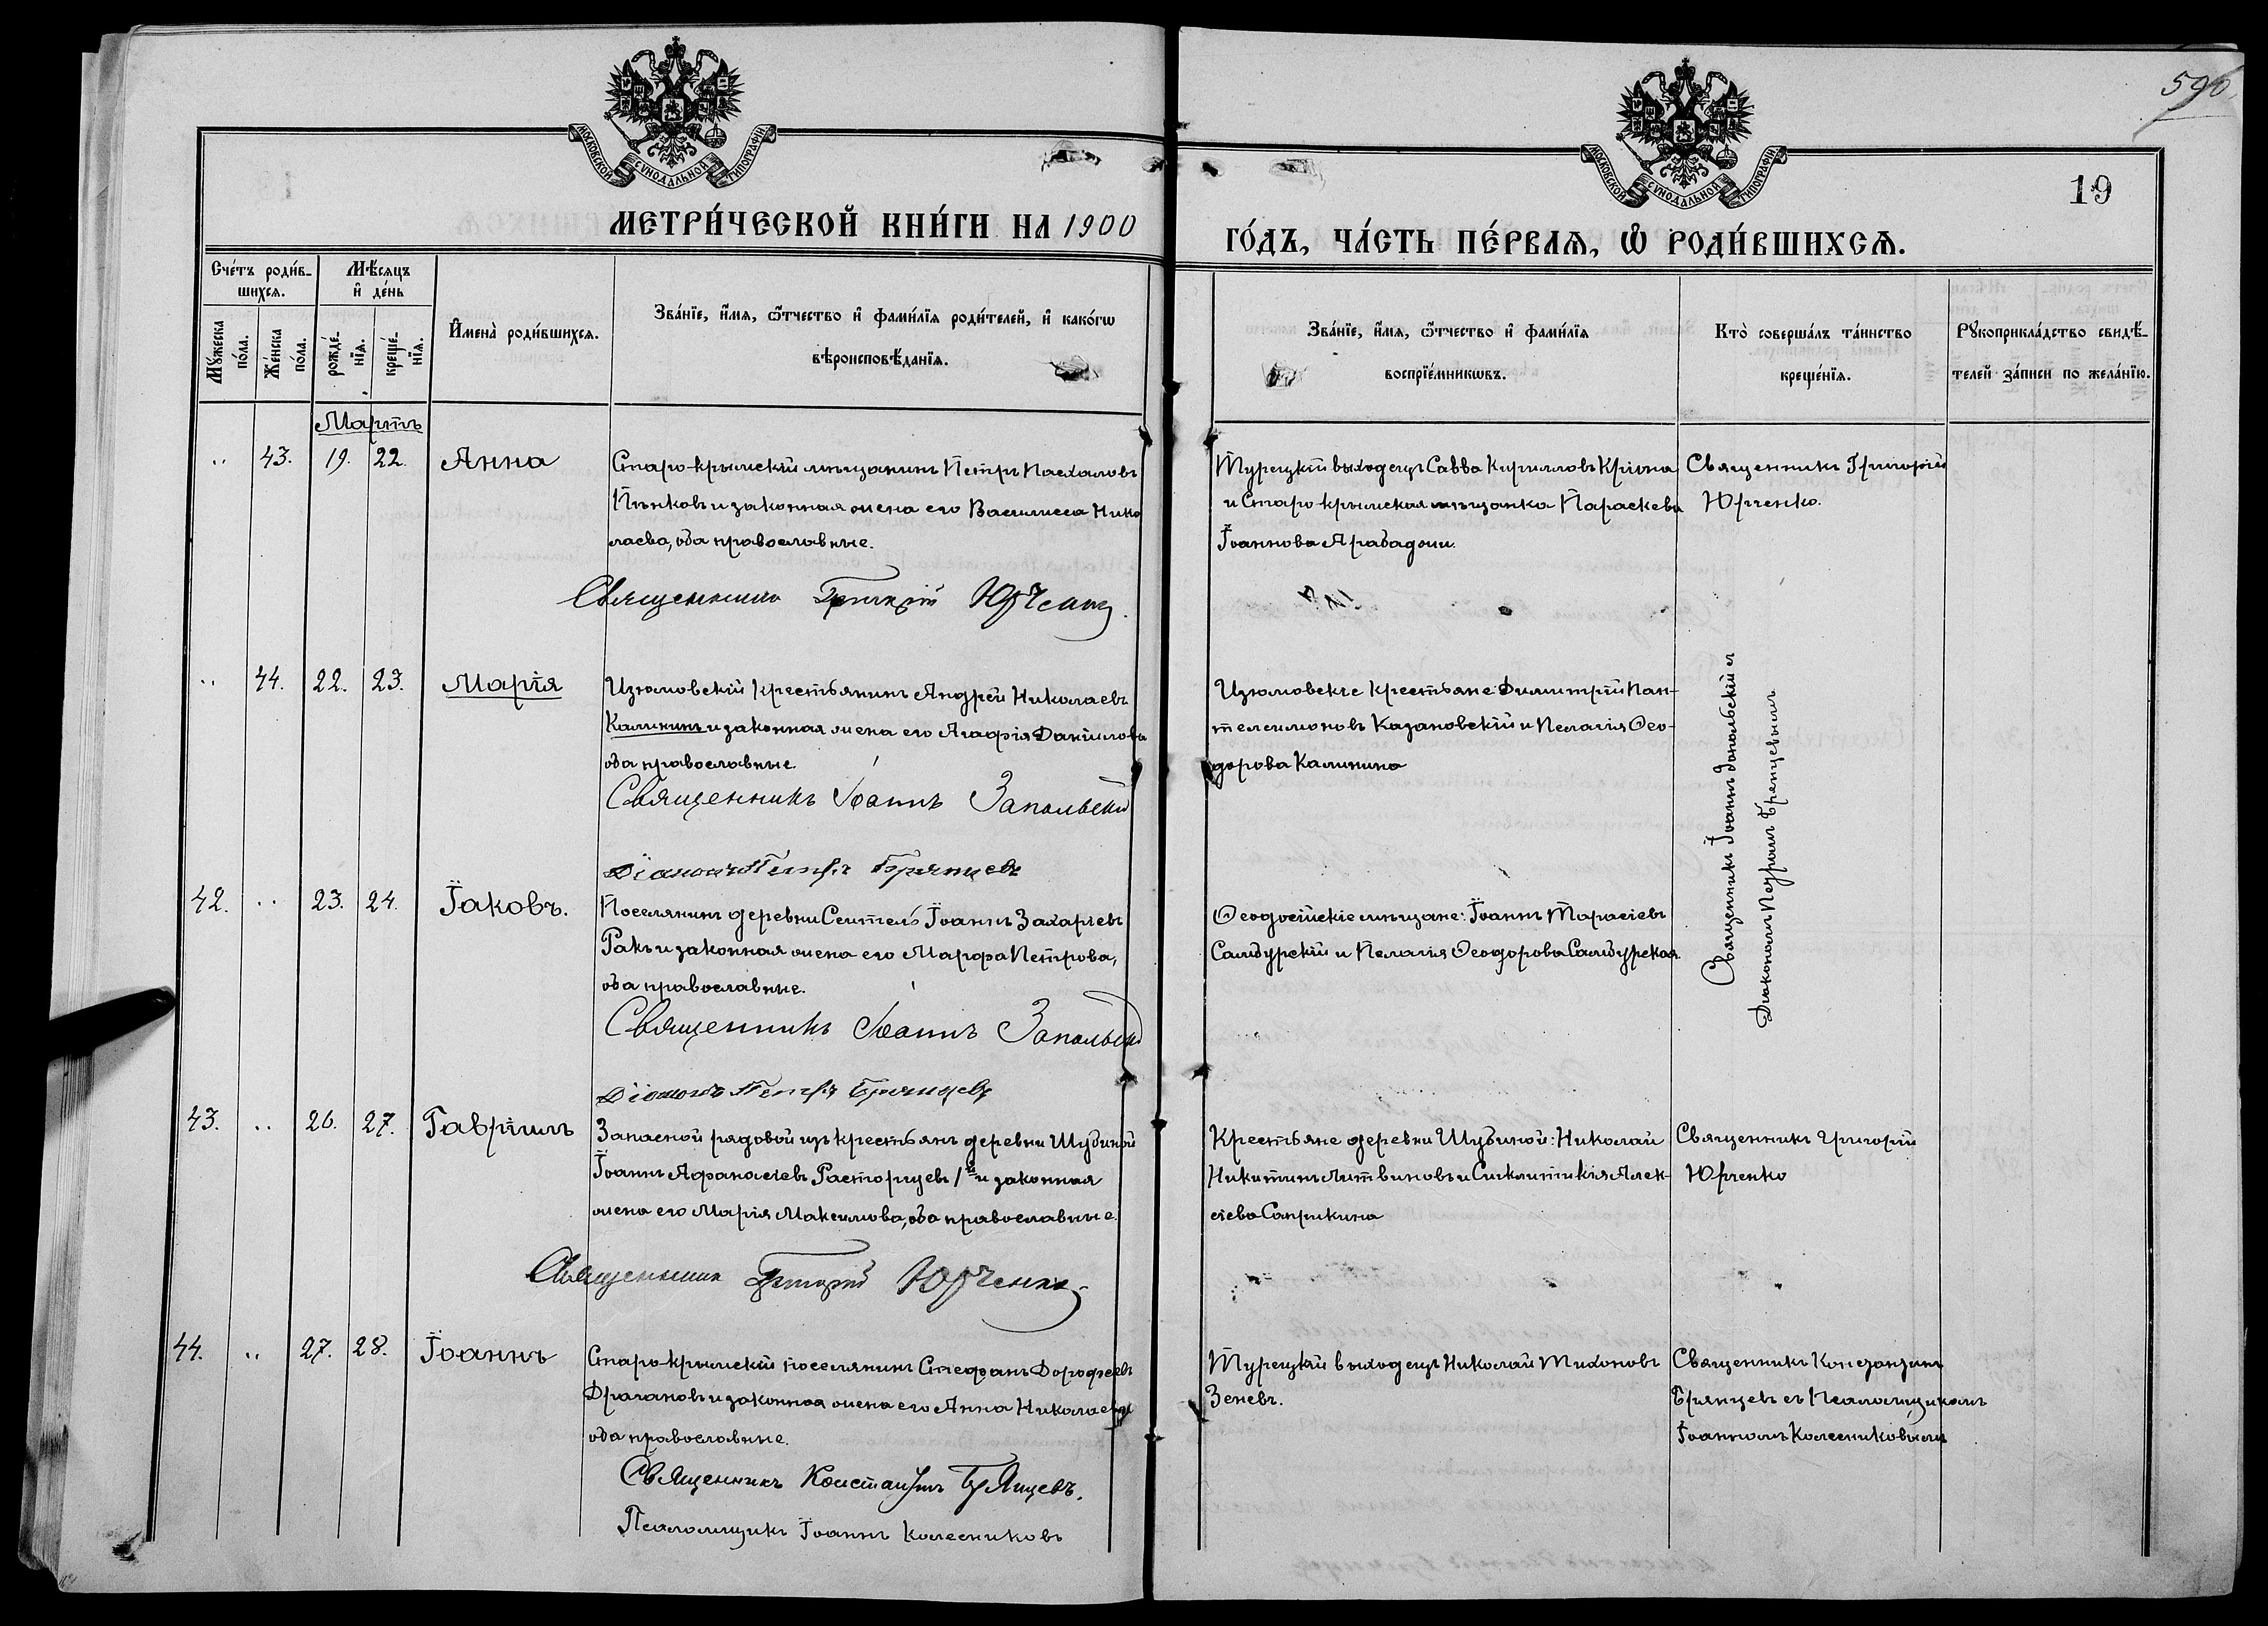 590
19
МОСКОВСКОЙ СУНОДАЛЬНОЙ ТИПОГРАФІИ
МОСКОВСКОЙ СУНОДАЛЬНОЙ ТИПОГРАФІИ
МЕТРИ́ЧЕСКОЙ КНИ́ГИ НА 1900
ГО́ДЪ, ЧА́СТЬ ПЕ́РВАѦ, Ѡ҆ РОДИ́ВШИХСѦ.
Сче́тъ роди́в-
шихсѧ.
Мѣ́сѧцъ
и҆ де́нь
Мꙋ́жеска
по́ла.
Же́нска
по́ла.
рожде́-
нїѧ.
креще́-
нїѧ.
И҆мена̀ роди́вшихсѧ.
Зва́нїе, и҆́мѧ, ѻ҆́тчество и҆ фами́лїѧ роди́телей, и҆ како́гѡ
вѣроисповѣ́данїѧ.
Зва́нїе, и҆́мѧ, ѻ҆́тчество и҆ фами́лїѧ
воспрїе́мникѡвъ.
Кто̀ соверша́лъ та́инство
креще́нїѧ.
Рꙋкоприкла́дство свидѣ́-
телей за́писи по жела́нїю.
Мартъ
43. 19. 22. Анна
Старо-крымскій мѣщанинъ Петръ Пасхаловъ
Пѣнковъ и законная жена его Василисса Нико
лаева, оба православные.
Священникъ Григорій Юрченко.
Турецкій выходецъ Савва Кирилловъ
и Старо-крымская мѣщанка Параскева
Іоаннова Арабаджи.
Священникъ Григорій
Юрченко.
44. 22. 23. Марія
Изюмовскій крестьянинъ Андрей Николаевъ
Калининъ и законная жена его Агафія Даніилова
оба православные.
Священникъ Іоаннъ Запольскій
Діаконъ Петръ Брянцевъ
Изюмовскіе крестьяне: Димитрій Пан-
телеимоновъ Казановскій и Пелагія Ѳео-
дорова Калинина
Священникъ Іоаннъ Запольскій съ
Діакономъ Петромъ Брянцевымъ
42. 23. 24. Іаковъ.
Поселянинъ деревни Сеитель Іоаннъ Захаріевъ
Ракъ и законная жена его Марфа Петрова,
оба православные.
Священникъ Іоаннъ Запольскій
Діаконъ Петръ Брянцевъ
Ѳеодосійскіе мѣщане: Іоаннъ Тарасіевъ
Самбурскій и Пелагія Ѳеодорова Самбурская.
43. 26. 27. Гавріилъ
Запасной рядовой изъ крестьянъ деревни Шубиной
Іоаннъ Афанасіевъ Расторгуевъ 1й и законная
жена его Марія Максимова, оба православные.
Священникъ Григорій Юрченко
Крестьяне деревни Шубиной: Николай
Никитинъ Литвиновъ и Синклитикія Алек-
сіева Сапрыкина
Священникъ Григорій
Юрченко
44. 27. 28. Іоаннъ
Старо-крымскій поселянинъ Стефанъ Дорофеевъ
Драгановъ и законная жена его Анна Николаева
оба православные.
Священникъ Константинъ Брянцевъ.
Псаломщикъ Іоаннъ Колесниковъ
Турецкій выходецъ Николай Тихоновъ
Зеневъ.
Священникъ Константинъ
Брянцевъ съ Псаломщикомъ
Іоанномъ Колесниковымъ